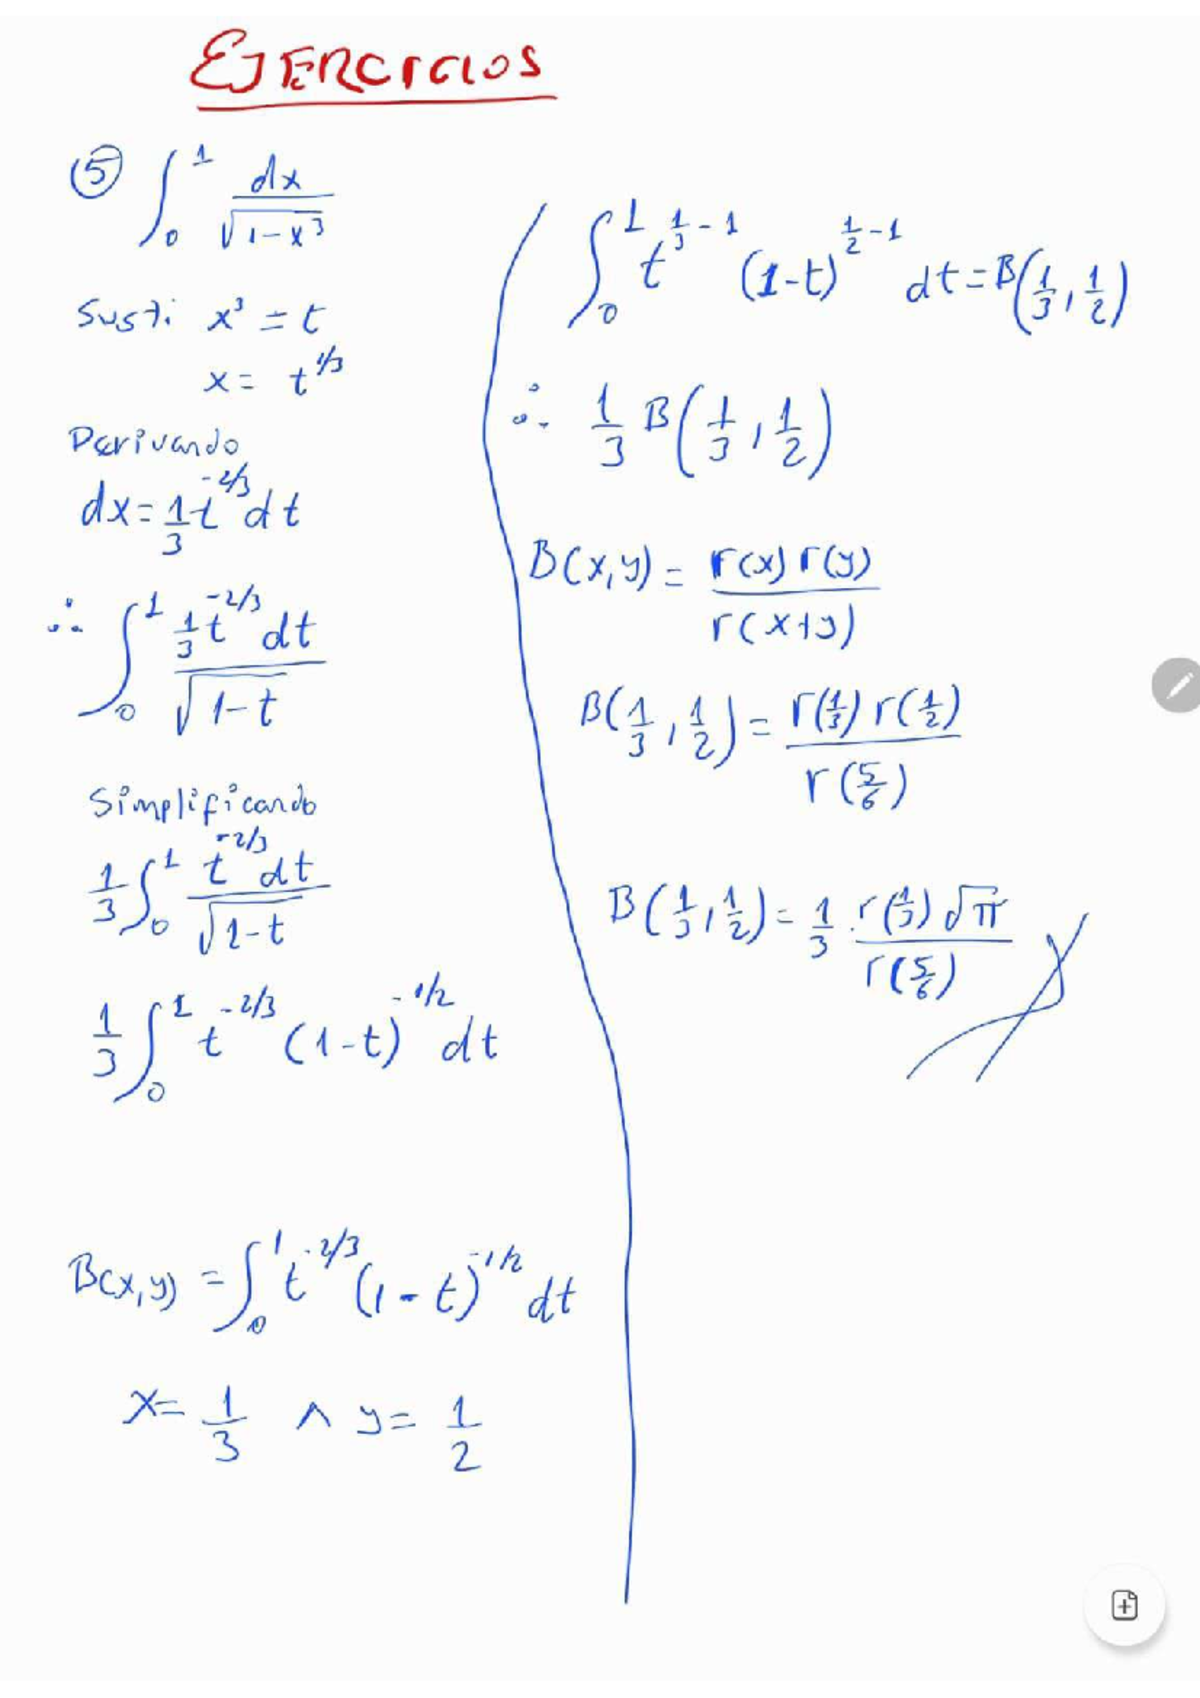 EJERCICIOS
⑤ ∫₀¹ dx/√(1-x³)
Susti x³ = t
x = t^(1/3)
Derivando
dx = 1/3 t^(-2/3) dt
∴ ∫₀¹ (1/3 t^(-2/3) dt)/√(1-t)
Simplificando
1/3 ∫₀¹ (t^(-2/3) dt)/√(1-t)
1/3 ∫₀¹ t^(-2/3) (1-t)^(-1/2) dt
B(x,y) = ∫₀¹ t^(-2/3) (1-t)^(-1/2) dt
x = 1/3 ∧ y = 1/2
∫₀¹ t^(1/3-1) (1-t)^(1/2-1) dt = B(1/3, 1/2)
∴ 1/3 B(1/3, 1/2)
B(x,y) = Γ(x) Γ(y)/Γ(x+y)
B(1/3, 1/2) = Γ(1/3) Γ(1/2)/Γ(5/6)
B(1/3, 1/2) = 1/3 · Γ(1/3) √π/Γ(5/6)